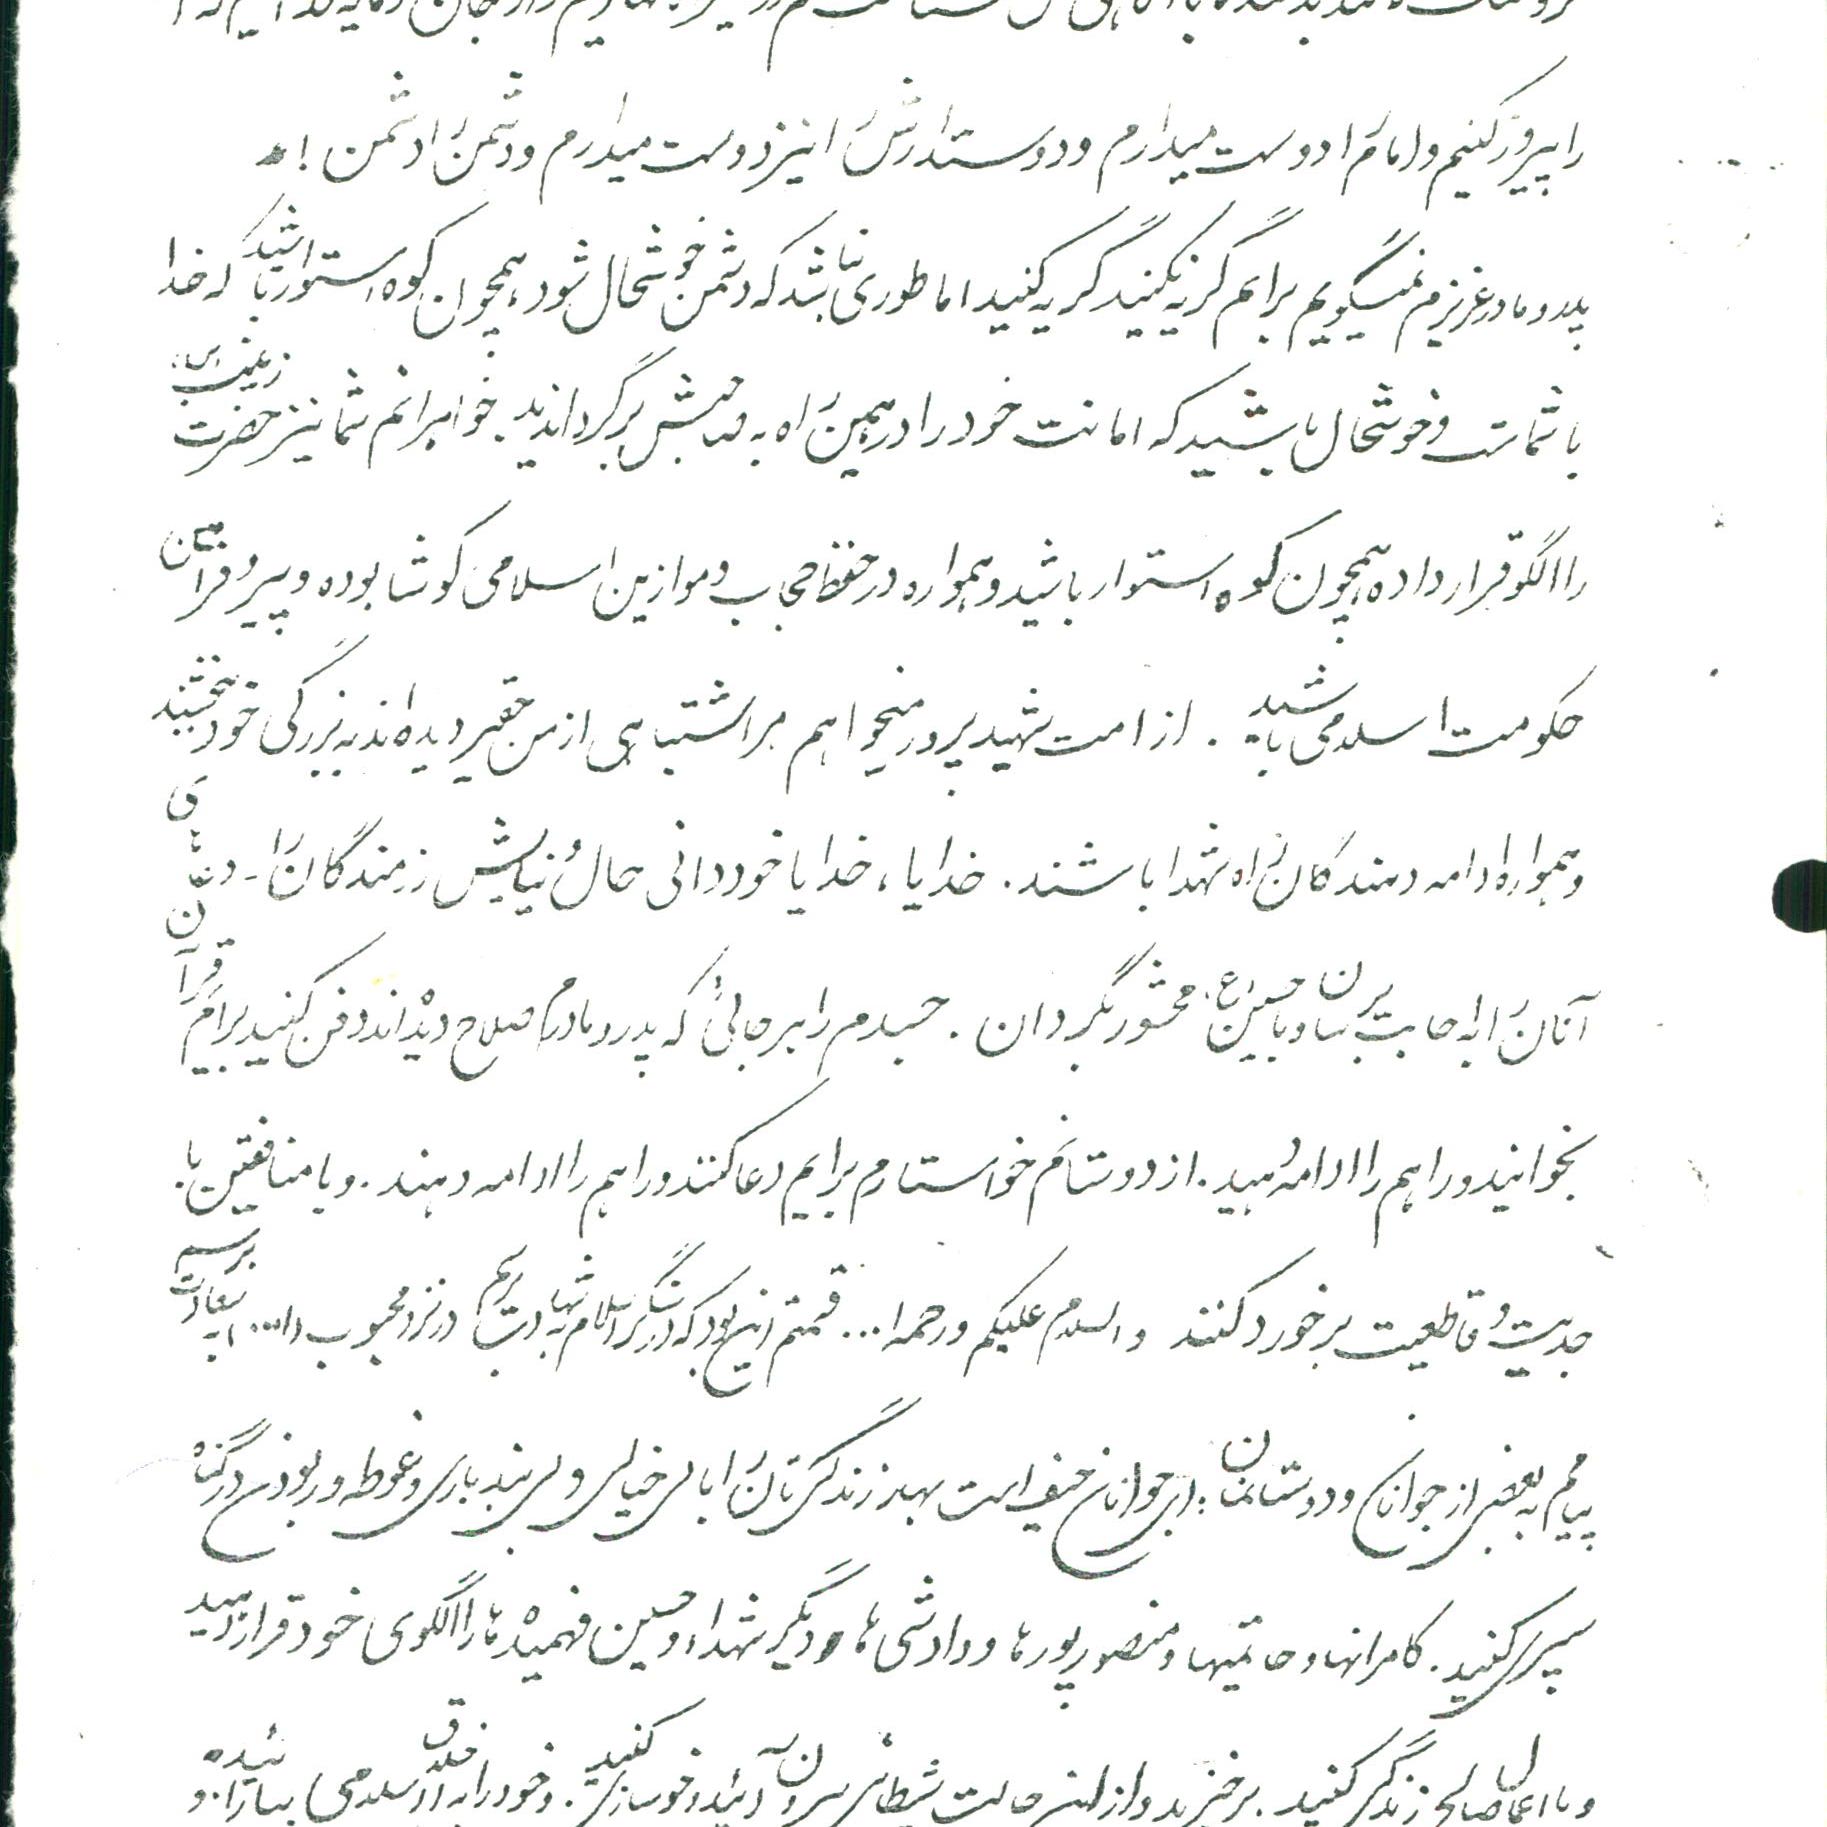 را پیروز کنیم و امام را دوست میدارم و دوستدارش را نیز دوست میدارم و دشمن را دشمن !
پدر و مادر عزیزم نمیگویم برایم گریه نکنید گریه کنید اما طوری نباشد که دشمن خوشحال شود، همچون کوه استوار باشید که خدا
با شماست و خوشحال باشید که امانت خود را در همین راه به صاحبش برگرداندید. خواهرانم شما نیز حضرت زینب (س)
را الگو قرار داده همچون کوه استوار باشید و همواره در حفظ حجاب و موازین اسلامی کوشا بوده و پیرو فرامین
حکومت اسلامی باشید. از امت شهید پرور میخواهم هر اشتباهی از من حقیر دیده اند به بزرگی خود ببخشند
و همواره ادامه دهندگان راه شهدا باشند. خدایا، خدایا خود دانی حال و نیایش رزمندگان را ـ دعای
آنان را به اجابت برسان و با حسین (ع) محشور بگردان. جسدم را هر جائی که پدر و مادرم صلاح دیده اند دفن کنید برایم قرآن
بخوانید و راهم را ادامه دهید. از دوستانم خواستارم برایم دعا کنند و راهم را ادامه دهند. و با منافقین با
جدیت و قاطعیت برخورد کنند والسلام علیکم و رحمه ا... قسمتم این بود که در سنگر اسلام به شهادت برسم در نزد محبوب ا... به سعادت برسم
پیامم به بعضی از جوانان و دوستانمان: ای جوانان حیف است بهار زندگی تان را با بی خیالی و بی بند باری و غوطه ور بودن در گناه
سپری کنید. کامرانها و حاتمیها و منصورپورها و دادشی ها و دیگر شهداء و حسین فهمیده ها را الگوی خود قرار دهید
و با اعمال صالح زندگی کنید. برخیزید و از این حالت شیطانی بیرون آئید و خودسازی کنید. و خود را به اخلاق اسلامی بیارائید و